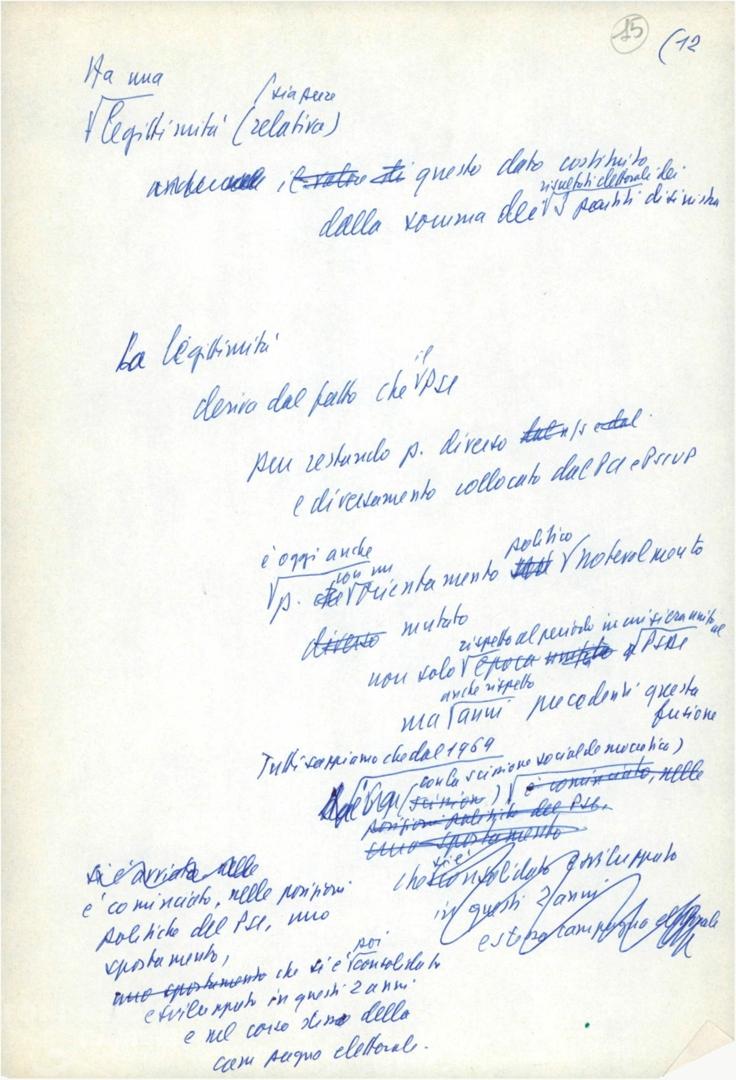 15 (12
Ha una
legittimità (sia pure
(relativa)
il valore di questo dato costituito
risultati elettorali dei
dalla somma dei 3 partiti di sinistra
La legittimità
il
deriva dal fatto che PSI
pur restando p. diverso
e diversamente collocato dal PCI e PSIUP
è oggi anche
politico
p. con un orientamento notevolmente
diverso mutato
rispetto al periodo in cui si era unito al
non solo epoca PSDI
anche rispetto
ma anni precedenti questa
fusione
Tutti sappiamo che dal 1969
con la scissione socialdemocratica)
(scissione) è cominciato, nelle
posizioni politiche del PSI,
uno spostamento
si è
che consolidato e sviluppato
in questi 2 anni
e stessa campagna elettorale
si è avviato nelle
è cominciato, nelle posizioni
politiche del PSI, uno
spostamento,
poi
uno spostamento che si è consolidato
e sviluppato in questi 2 anni
e nel corso stesso della
campagna elettorale.